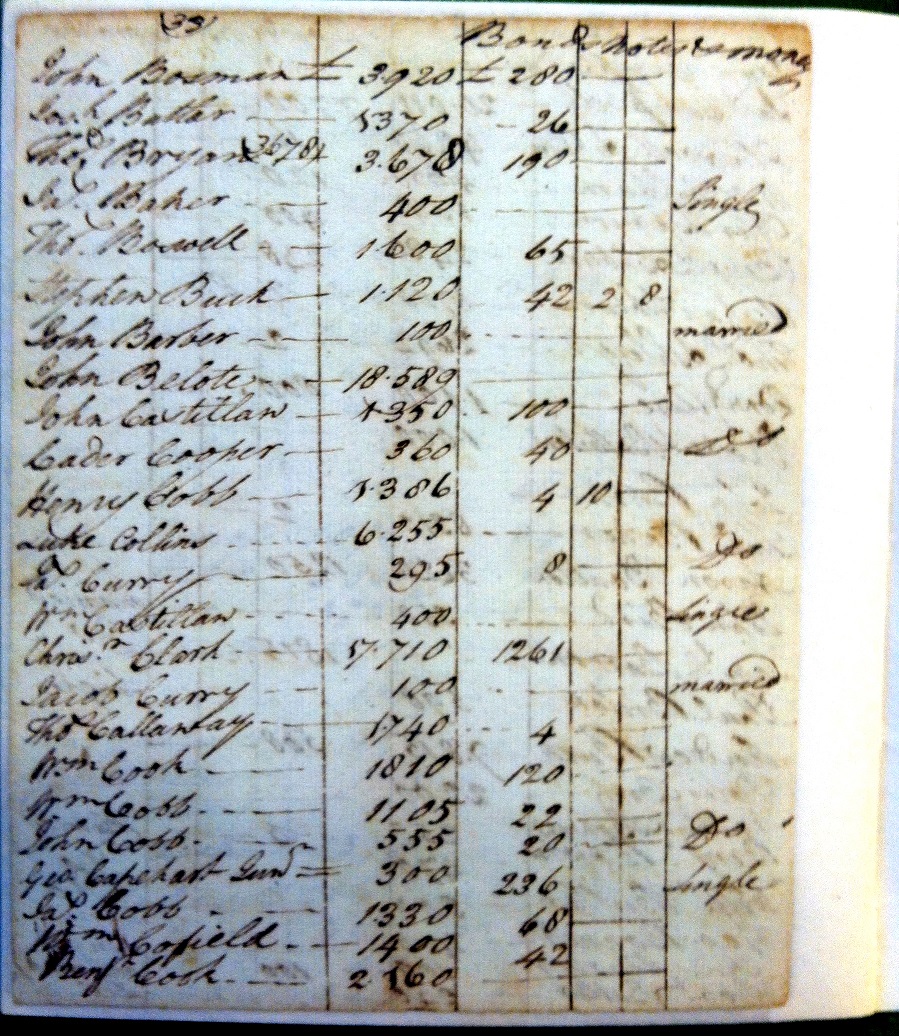 (33)
Bonds notes & money
John Bosman £ 3920 £ 280
Butler 1370 26
Tho.s Bryan 3678 3.678 190
Ja.s Baker 400 Single
Tho.s Boswell 1600 65
Stephen Buck 1.120 42 2 8
John Barber 100 married
John Belote 18.589
John Castillaw 1350 100
Cader Cooper 360 40 Do
Henry Cobb 1.386 4 10
Luke Collins 6.255
Ja.s Curry 295 8 Do
Wm Castillaw 400 Single
Clark 17.710 1261
Jacob Curry 100 married
Tho.s Callaway 1740 4
Wm Cook 1810 120
Wm Cobb 1105 22
John Cobb 555 20 Do
Geo Capehart Jun.r 300 236 Single
Ja.s Cobb 1330 68
Wm Corfield 1400 42
Benj.n Cook 2160